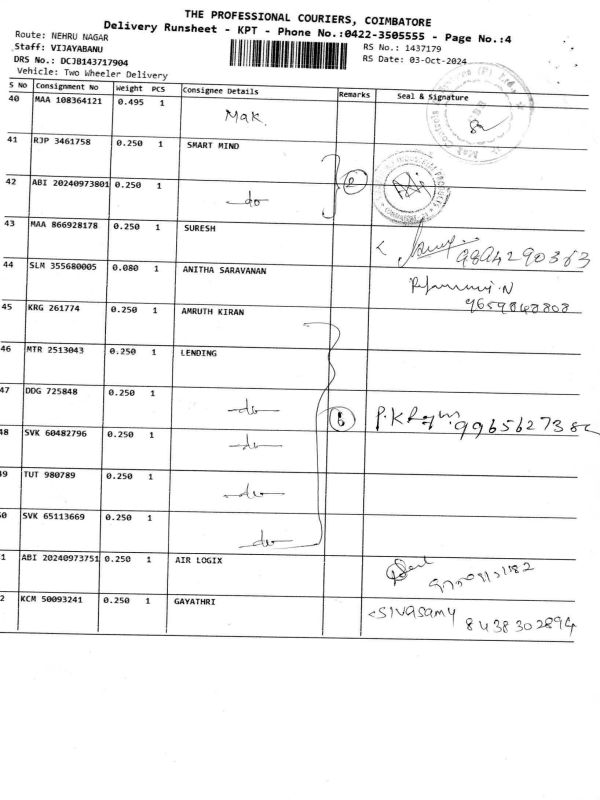 THE PROFESSIONAL COURIERS, COIMBATORE
Delivery Runsheet - KPT - Phone No.:0422-3505555 - Page No.:4
Route: NEHRU NAGAR
RS No.: 1437179
Staff: VIJAYABANU
RS Date: 03-Oct-2024
DRS No.: DCJB143717904
Vehicle: Two Wheeler Delivery
S No Consignment No Weight PCS Consignee Details Remarks Seal & Signature
40 MAA 108364121 0.495 1 Mak.
41 RJP 3461758 0.250 1 SMART MIND
42 ABI 20240973801 0.250 1 do 2
43 MAA 866928178 0.250 1 SURESH 9894290363
44 SLM 355680005 0.080 1 ANITHA SARAVANAN
9659848808
45 KRG 261774 0.250 1 AMRUTH KIRAN
46 MTR 2513043 0.250 1 LENDING
47 DDG 725848 0.250 1 do 6
48 SVK 60482796 0.250 1 do
49 TUT 980789 0.250 1 do
50 SVK 65113669 0.250 1 do
1 ABI 20240973751 0.250 1 AIR LOGIX
2 KCM 50093241 0.250 1 GAYATHRI SIVASAMY
8438302894